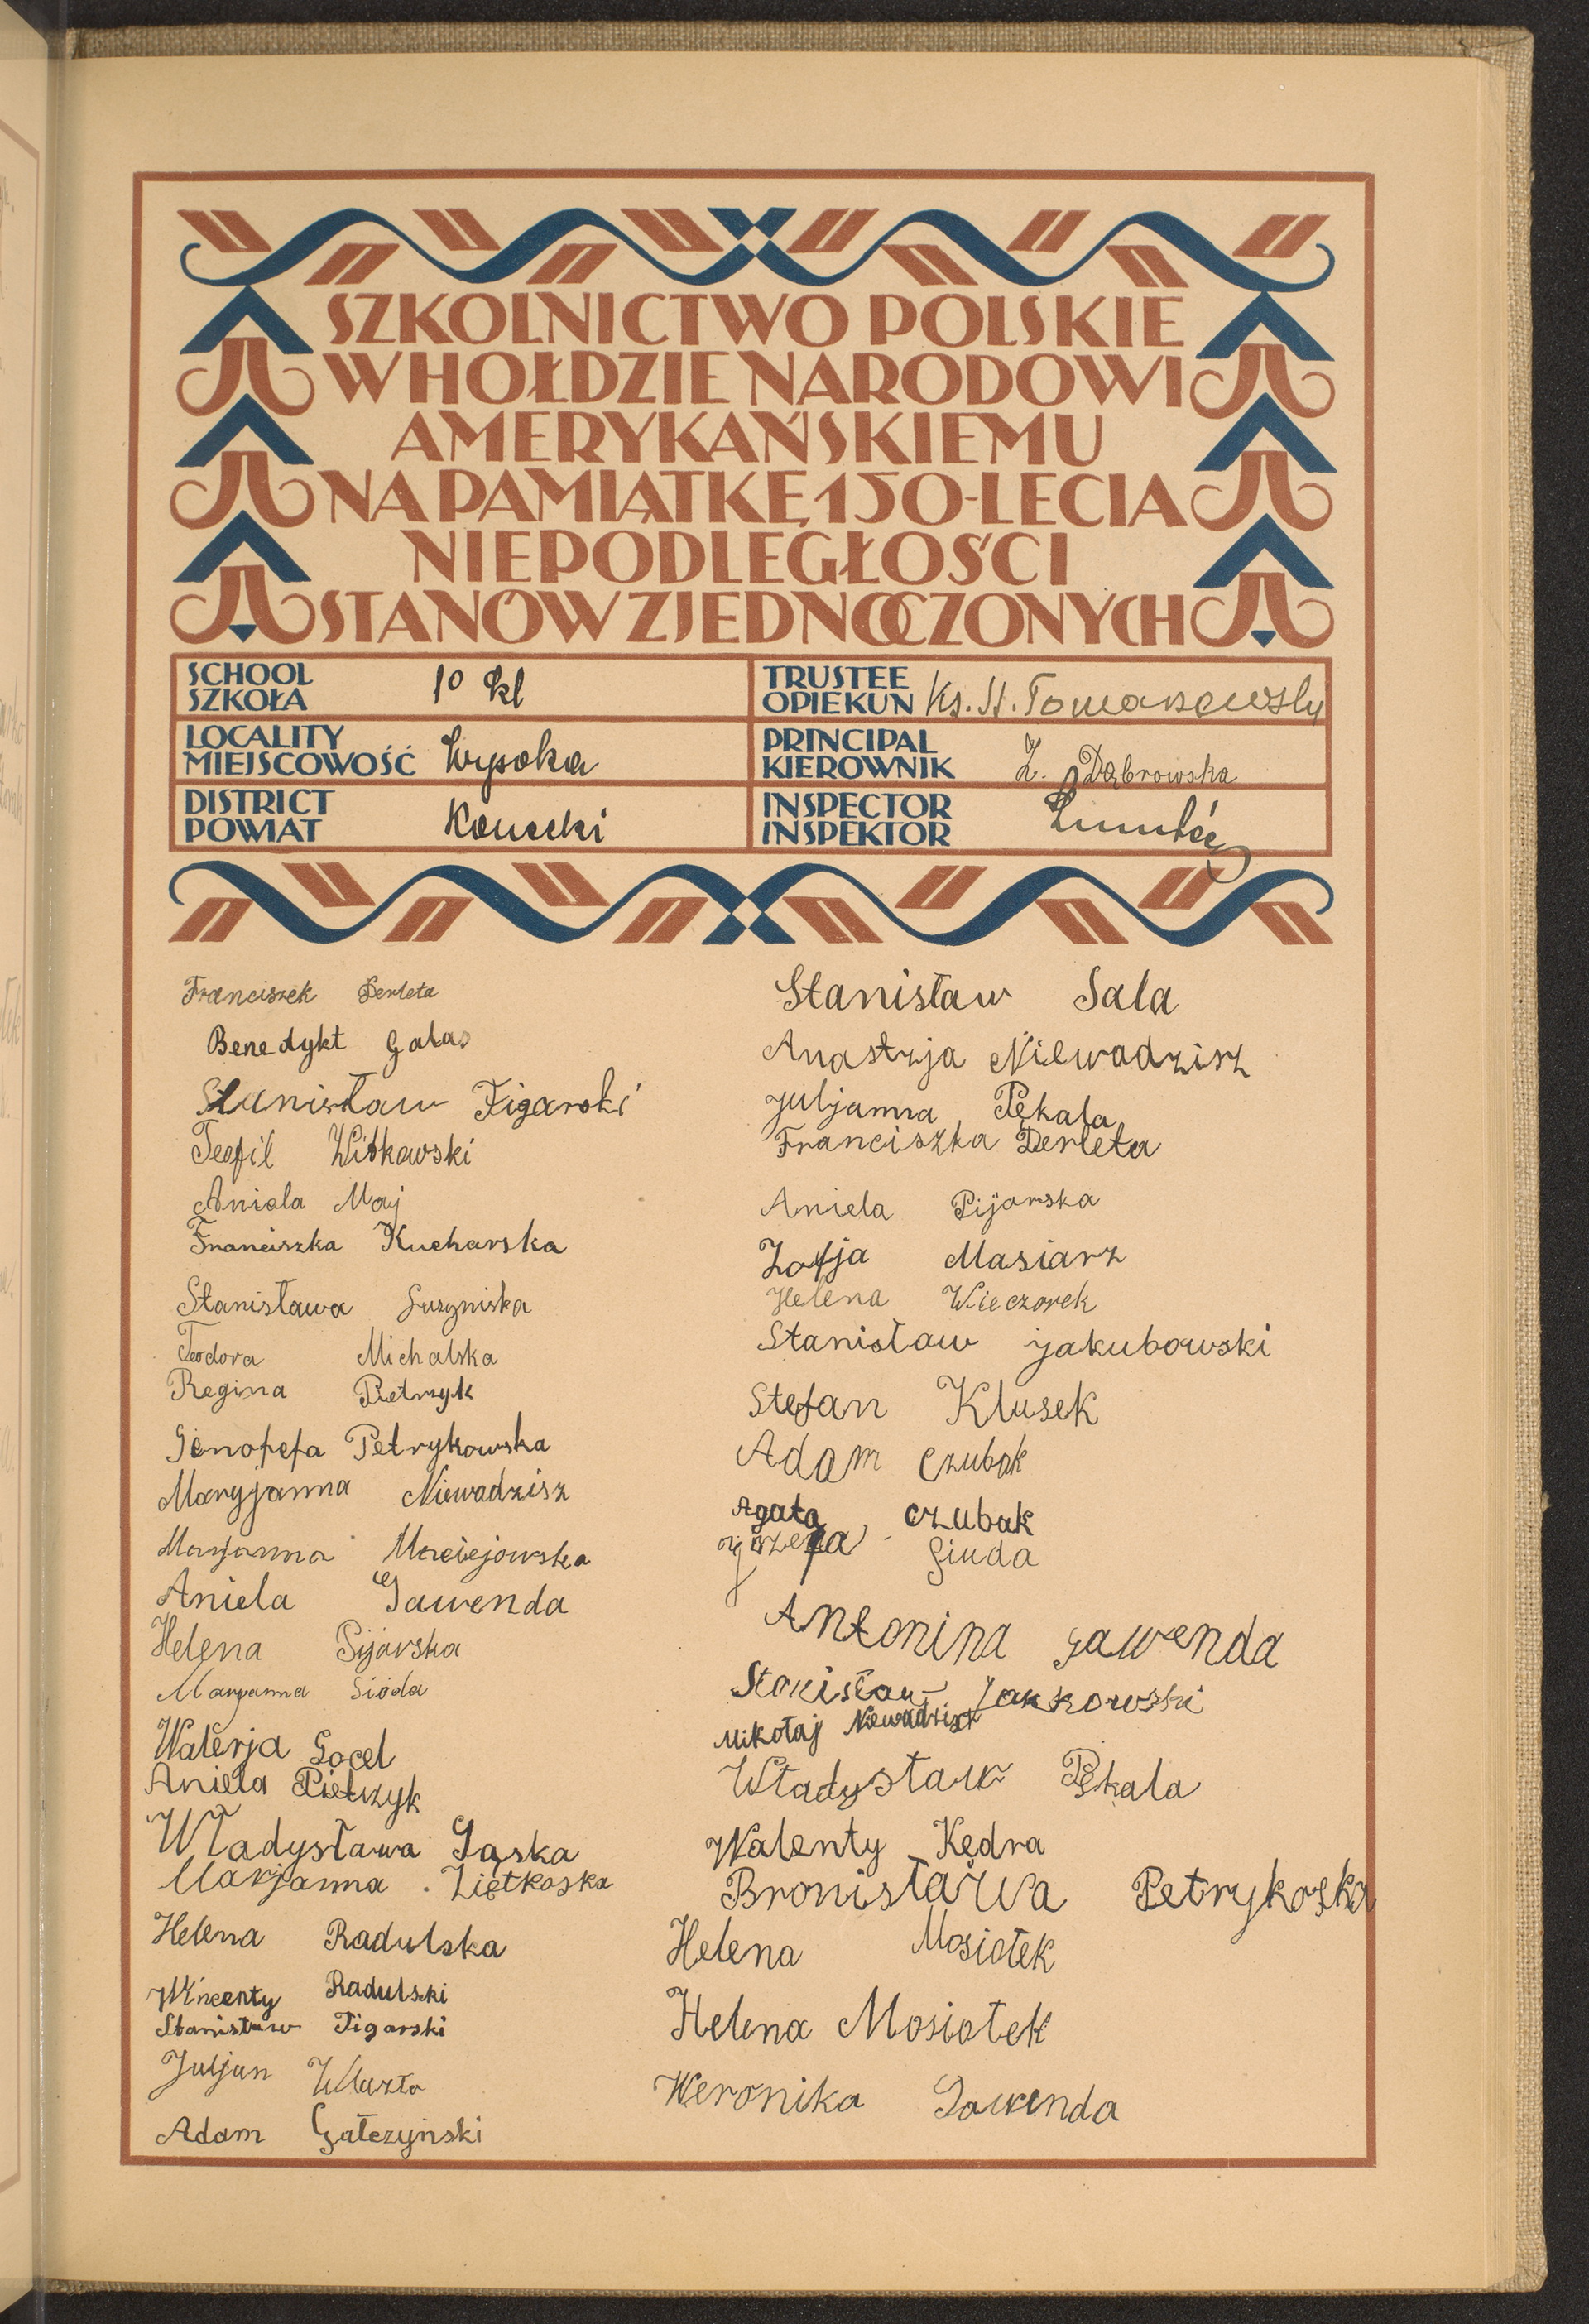 SZKOLNICTWO POLSKIE
W HOŁDZIE NARODOWI
AMERYKAŃSKIEMU
NA PAMIĄTKĘ 150-LECIA
NIEPODLEGŁOŚCI
STANÓW ZJEDNOCZONYCH
SCHOOL
SZKOŁA
1º kl
TRUSTEE
OPIEKUN
Ks. St. Tomaszewski
LOCALITY
MIEJSCOWOŚĆ
Wysoka
PRINCIPAL
KIEROWNIK
Z. Dąbrowska
DISTRICT
POWIAT
Konecki
INSPECTOR
INSPEKTOR
Franciszek Derleta
Benedykt Galas
Stanisław Figarski
Teofil Witkowski
Aniela Maj
Franciszka Kucharska
Stanisława
Teodora Michalska
Regina Pietrzyk
Genofefa Petrykowska
Maryjanna Niewadzisz
Marjanna Maciejowska
Aniela Gawenda
Helena Pijarska
Maryanna Sioda
Walerja Gocel
Aniela Pietrzyk
Władysława Gąska
Marjanna Ziętkoska
Helena Radulska
Wincenty Radulski
Stanisław Figarski
Juljan Wlazło
Adam Gałczyński
Stanisław Sala
Anastzja Niewadzisz
Juljanna Pękala
Franciszka Derleta
Aniela Pijarska
Zofja Masiarz
Helena Wieczorek
Stanisław Jakubowski
Stefan Klusek
Adam Czubak
Agata Czubak
Giuda
Antonina Gawenda
Stanisław
Mikołaj Niewadzisz
Władysław Pękala
Walenty Kędra
Bronisława Petrykoska
Helena Mosiołek
Helena Mosiołek
Weronika Gawenda